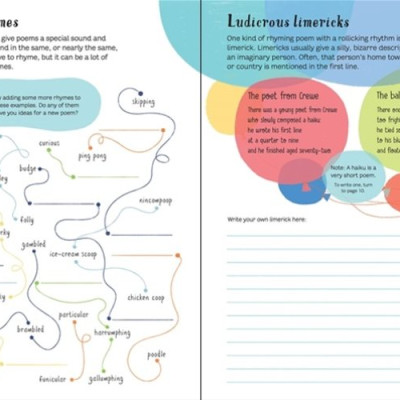 mes
give poems a special sound and
nd in the same, or nearly the same,
ve to rhyme, but it can be a lot of
mes.
y adding some more rhymes to
ese examples. Do any of them
ve you ideas for a new poem?
skipping
curious
ping pong
budge
ley
nincompoop
folly
rky
gambled
ice-cream scoop
chicken coop
particular
brambled
harrumphing
poodle
funicular
galumphing
Ludicrous limericks
One kind of rhyming poem with a rollicking rhythm is
limerick. Limericks usually give a silly, bizarre descri
an imaginary person. Often, that person's home tow
or country is mentioned in the first line.
The poet from Crewe
There was a young poet from Crewe
who slowly composed a haiku
he wrote his first line
at a quarter to nine
and he finished aged seventy-two.
The bal
There one
too frigh
he tied s
to his bl
and float
Note: A haiku is a
very short poem.
To write one, turn
to page 10.
Write your own limerick here: